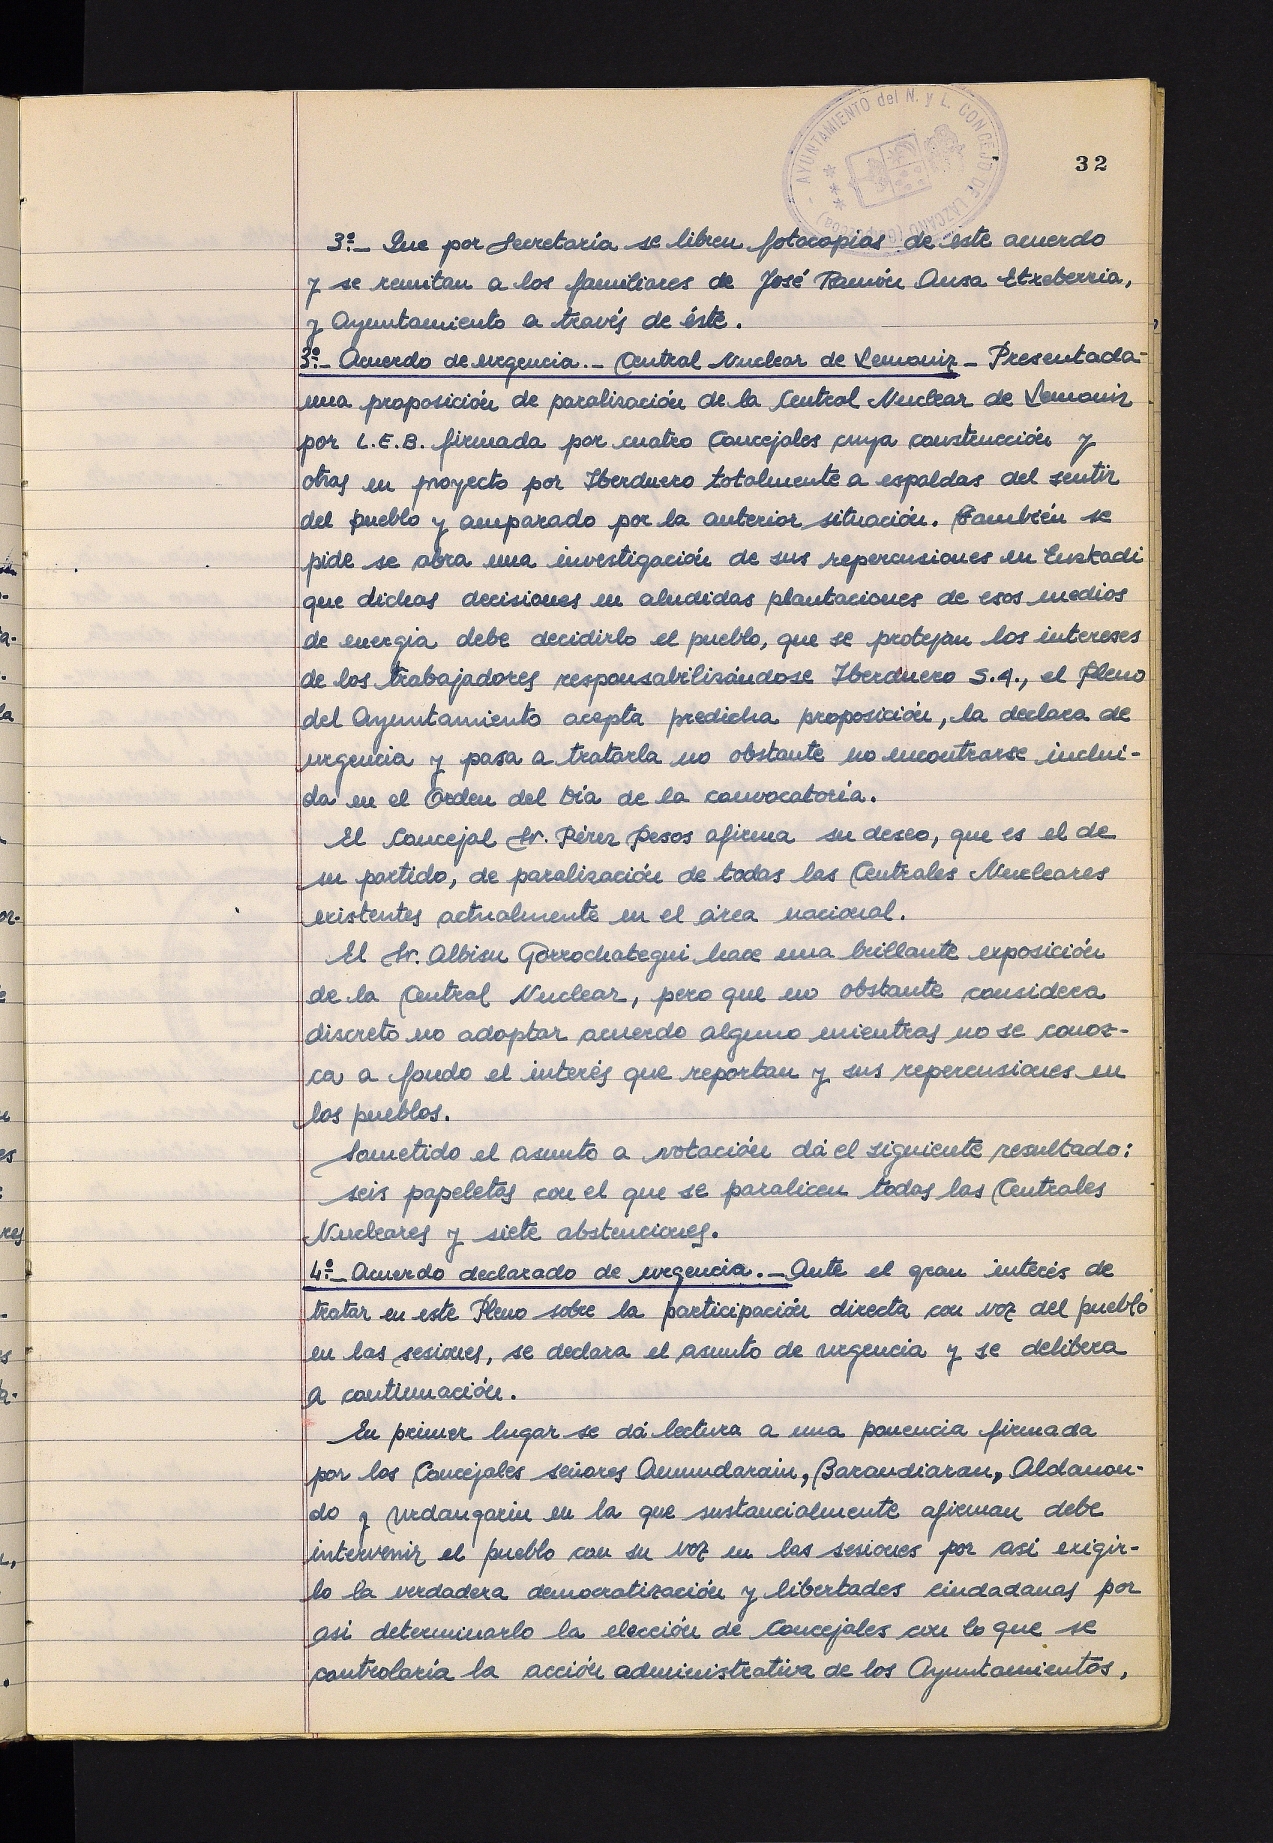 AYUNTAMIENTO del N. y L. CONCEJO DE LAZCANO (Guipúzcoa)
32
3º.- Que por Secretaría se libren fotocopias de este acuerdo
y se remitan a los familiares de José Ramón Ansa Etxeberria,
y Ayuntamiento a través de éste.
3º.- Acuerdo de urgencia.- Central Nuclear de Lemoniz - Presentada
una proposición de paralización de la Central Nuclear de Lemoniz
por L.E.B. firmada por cuatro Concejales cuya construcción y
otras en proyecto por Iberduero totalmente a espaldas del sentir
del pueblo y amparado por la anterior situación. También se
pide se abra una investigación de sus repercusiones en Euskadi
que dichas decisiones en aludidas plantaciones de esos medios
de energia debe decidirlo el pueblo, que se protejan los intereses
de los trabajadores responsabilizándose Iberduero S.A., el Pleno
del Ayuntamiento acepta predicha proposición, la declara de
urgencia y pasa a tratarla no obstante no encontrarse inclui-
da en el Orden del Día de la convocatoria.
El Concejal Sr. Pérez Pesos afirma su deseo, que es el de
su partido, de paralización de todas las Centrales Nucleares
existentes actualmente en el área nacional.
El Sr. Albisu Gorrochategui hace una brillante exposición
de la Central Nuclear, pero que no obstante considera
discreto no adoptar acuerdo alguno mientras no se conoz-
ca a fondo el interés que reportan y sus repercusiones en
los pueblos.
Sometido el asunto a votación dá el siguiente resultado:
seis papeletas con el que se paralicen todas las Centrales
Nucleares y siete abstenciones.
4º.- Acuerdo declarado de urgencia.- Ante el gran interés de
tratar en este Pleno sobre la participación directa con voz del pueblo
en las sesiones, se declara el asunto de urgencia y se delibera
a continuación.
En primer lugar se dá lectura a una ponencia firmada
por los Concejales señores Amundarain, Barandiaran, Aldanon-
do y Urdangarin en la que sustancialmente afirman debe
intervenir el pueblo con su voz en las sesiones por asi exigir-
lo la verdadera democratización y libertades ciudadanas por
asi determinarlo la elección de Concejales con lo que se
controlaría la acción administrativa de los Ayuntamientos,